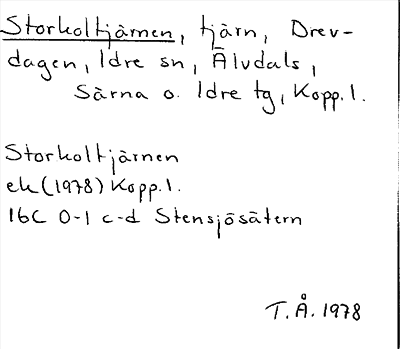 Storkoltjärnen, tjärn, Drev-
dagen, Idre sn, Älvdals,
Särna o. Idre tg, Kopp. l.
Storkoltjärnen
ek (1978) Kopp. l.
16C 0-1 c-d Stensjösätern
T. Å. 1978